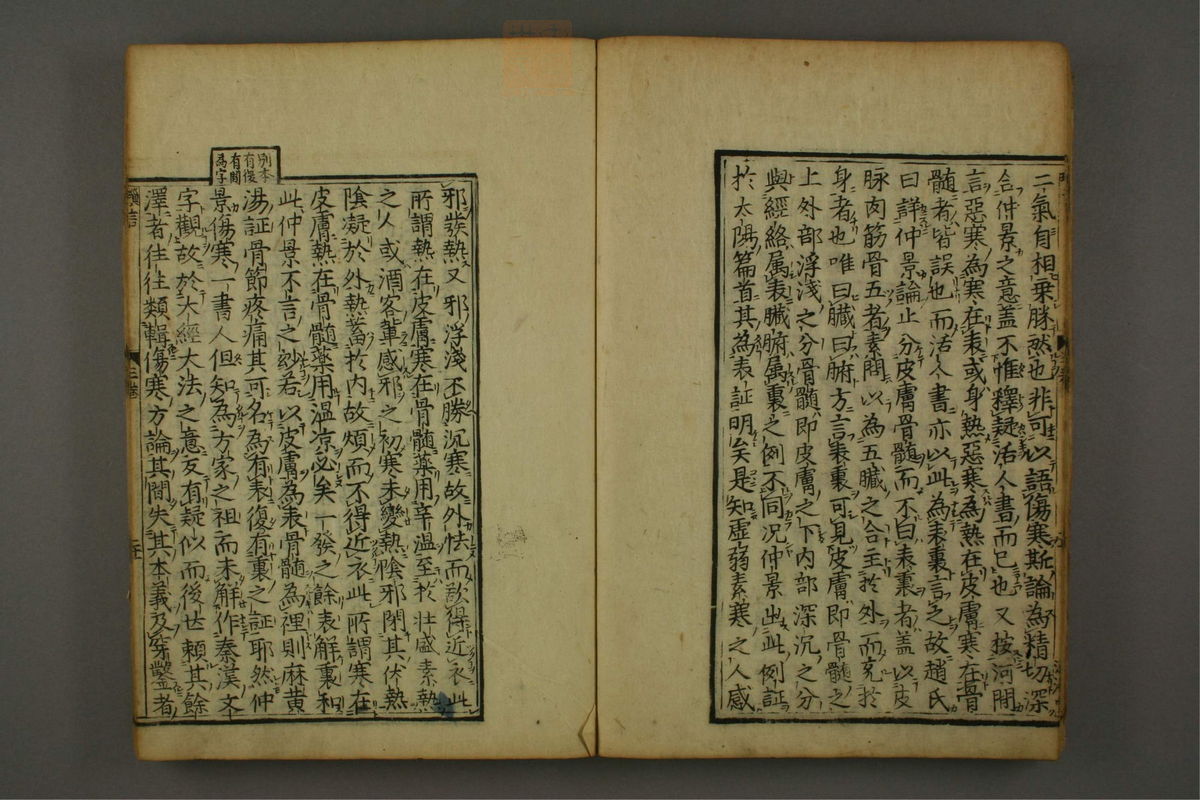 二氣自相乗勝然也非可以語傷寒斯論為精切深
合仲景之意盖不惟釋疑活人書而已也又按河間
言惡寒為寒在表或身熱惡寒為熱在皮膚寒在骨
髓者皆誤也而活人書亦以此為表裏言之故趙氏
曰詳仲景論止分皮膚骨髓而不曰表裏者盖以皮
脉肉筋骨五者素問以為五臓之合主於外而充於
身者也唯曰臓曰腑方言表裏可見皮膚即骨髓之
上外部浮淺之分骨髓即皮膚之下内部深沉之分
與經絡属表臓腑属裏之例不同况仲景出此例証
於太陽篇首其為表証明矣是知虚弱素寒之人感
邪發熱又邪浮淺不勝沉寒故外怯而欲得近衣此
所謂熱在皮膚寒在骨髓藥用辛温至於壮盛素熱
之人或酒客輩感邪之初寒未變熱陰邪閉其伏熱
陰凝於外熱蓄於内故煩而不得近衣此所謂寒在
皮膚熱在骨髓藥用温凉必矣一發之餘表解裏和
此仲景不言之妙若以皮膚為表骨髓為裡則麻黄
湯証骨節疼痛其可名為有表復有裏之証耶然仲
景傷寒一書人但知為方家之祖而未解作秦漢文
字觀故於大經大法之意反有疑似而後世頼其餘
澤者往往類輯傷寒方論其間失其本義及穿鑿者
別本
有後
有間
為字
三巻